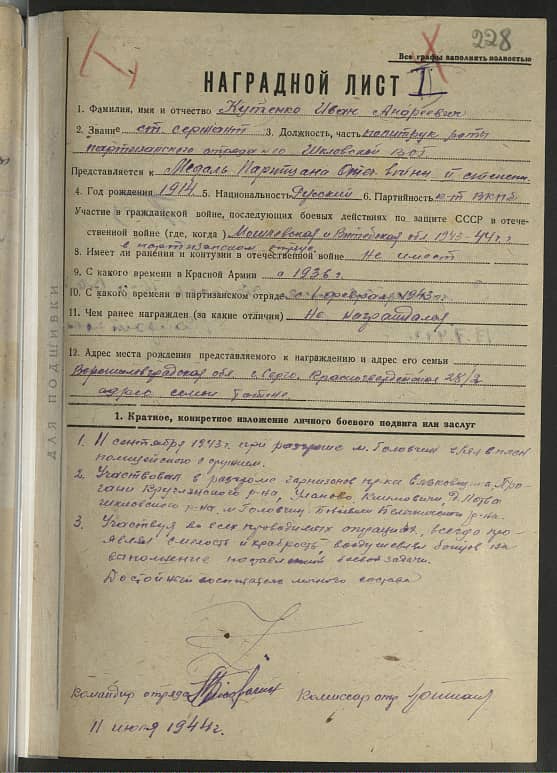 228
Все графы заполнять полностью
НАГРАДНОЙ ЛИСТ II
1. Фамилия, имя и отчество Кутенко Иван Андреевич
2. Звание ст. сержант 3. Должность, часть политрук роты
партизанского отряда Шкловской
Представляется к Медаль Партизана Отеч. войны II степени
4. Год рождения 1914 5. Национальность Русский 6. Партийность к-т ВКПб
Участие в гражданской войне, последующих боевых действиях по защите СССР и отече-
ственной войне (где, когда) Могилевская и Витебская обл. 1943-44 г.г.
в партизанском отряде
8. Имеет ли ранения и контузии в отечественной войне Не имеет
9. С какого времени в Красной Армии с 1936 г.
10. С какого времени в партизанском отряде с февраля 1943 г.
11. Чем ранее награжден (за какие отличия) Не награждался
12. Адрес места рождения представляемого к награждению и адрес его семьи
Ворошиловградская обл. г. Серго, Красногвардейская 28/2
адрес семьи тот же
ДЛЯ ПОДШИВКИ
1. Краткое, конкретное изложение личного боевого подвига или заслуг
1. 11 сентября 1943 г. при разгроме м. Головчин взял в плен
полицейского с оружием.
2. Участвовал в разгроме гарнизонов
Круглянского р-на,
р-на, м. Головчин, Белыничского р-на.
3. Участвуя во всех проводимых операциях, всегда про-
являл смелость и храбрость воодушевляя бойцов на
выполнение поставленной боевой задачи.
Достойный воспитатель личного состава
Командир отряда Комиссар отр.
11 июля 1944 г.